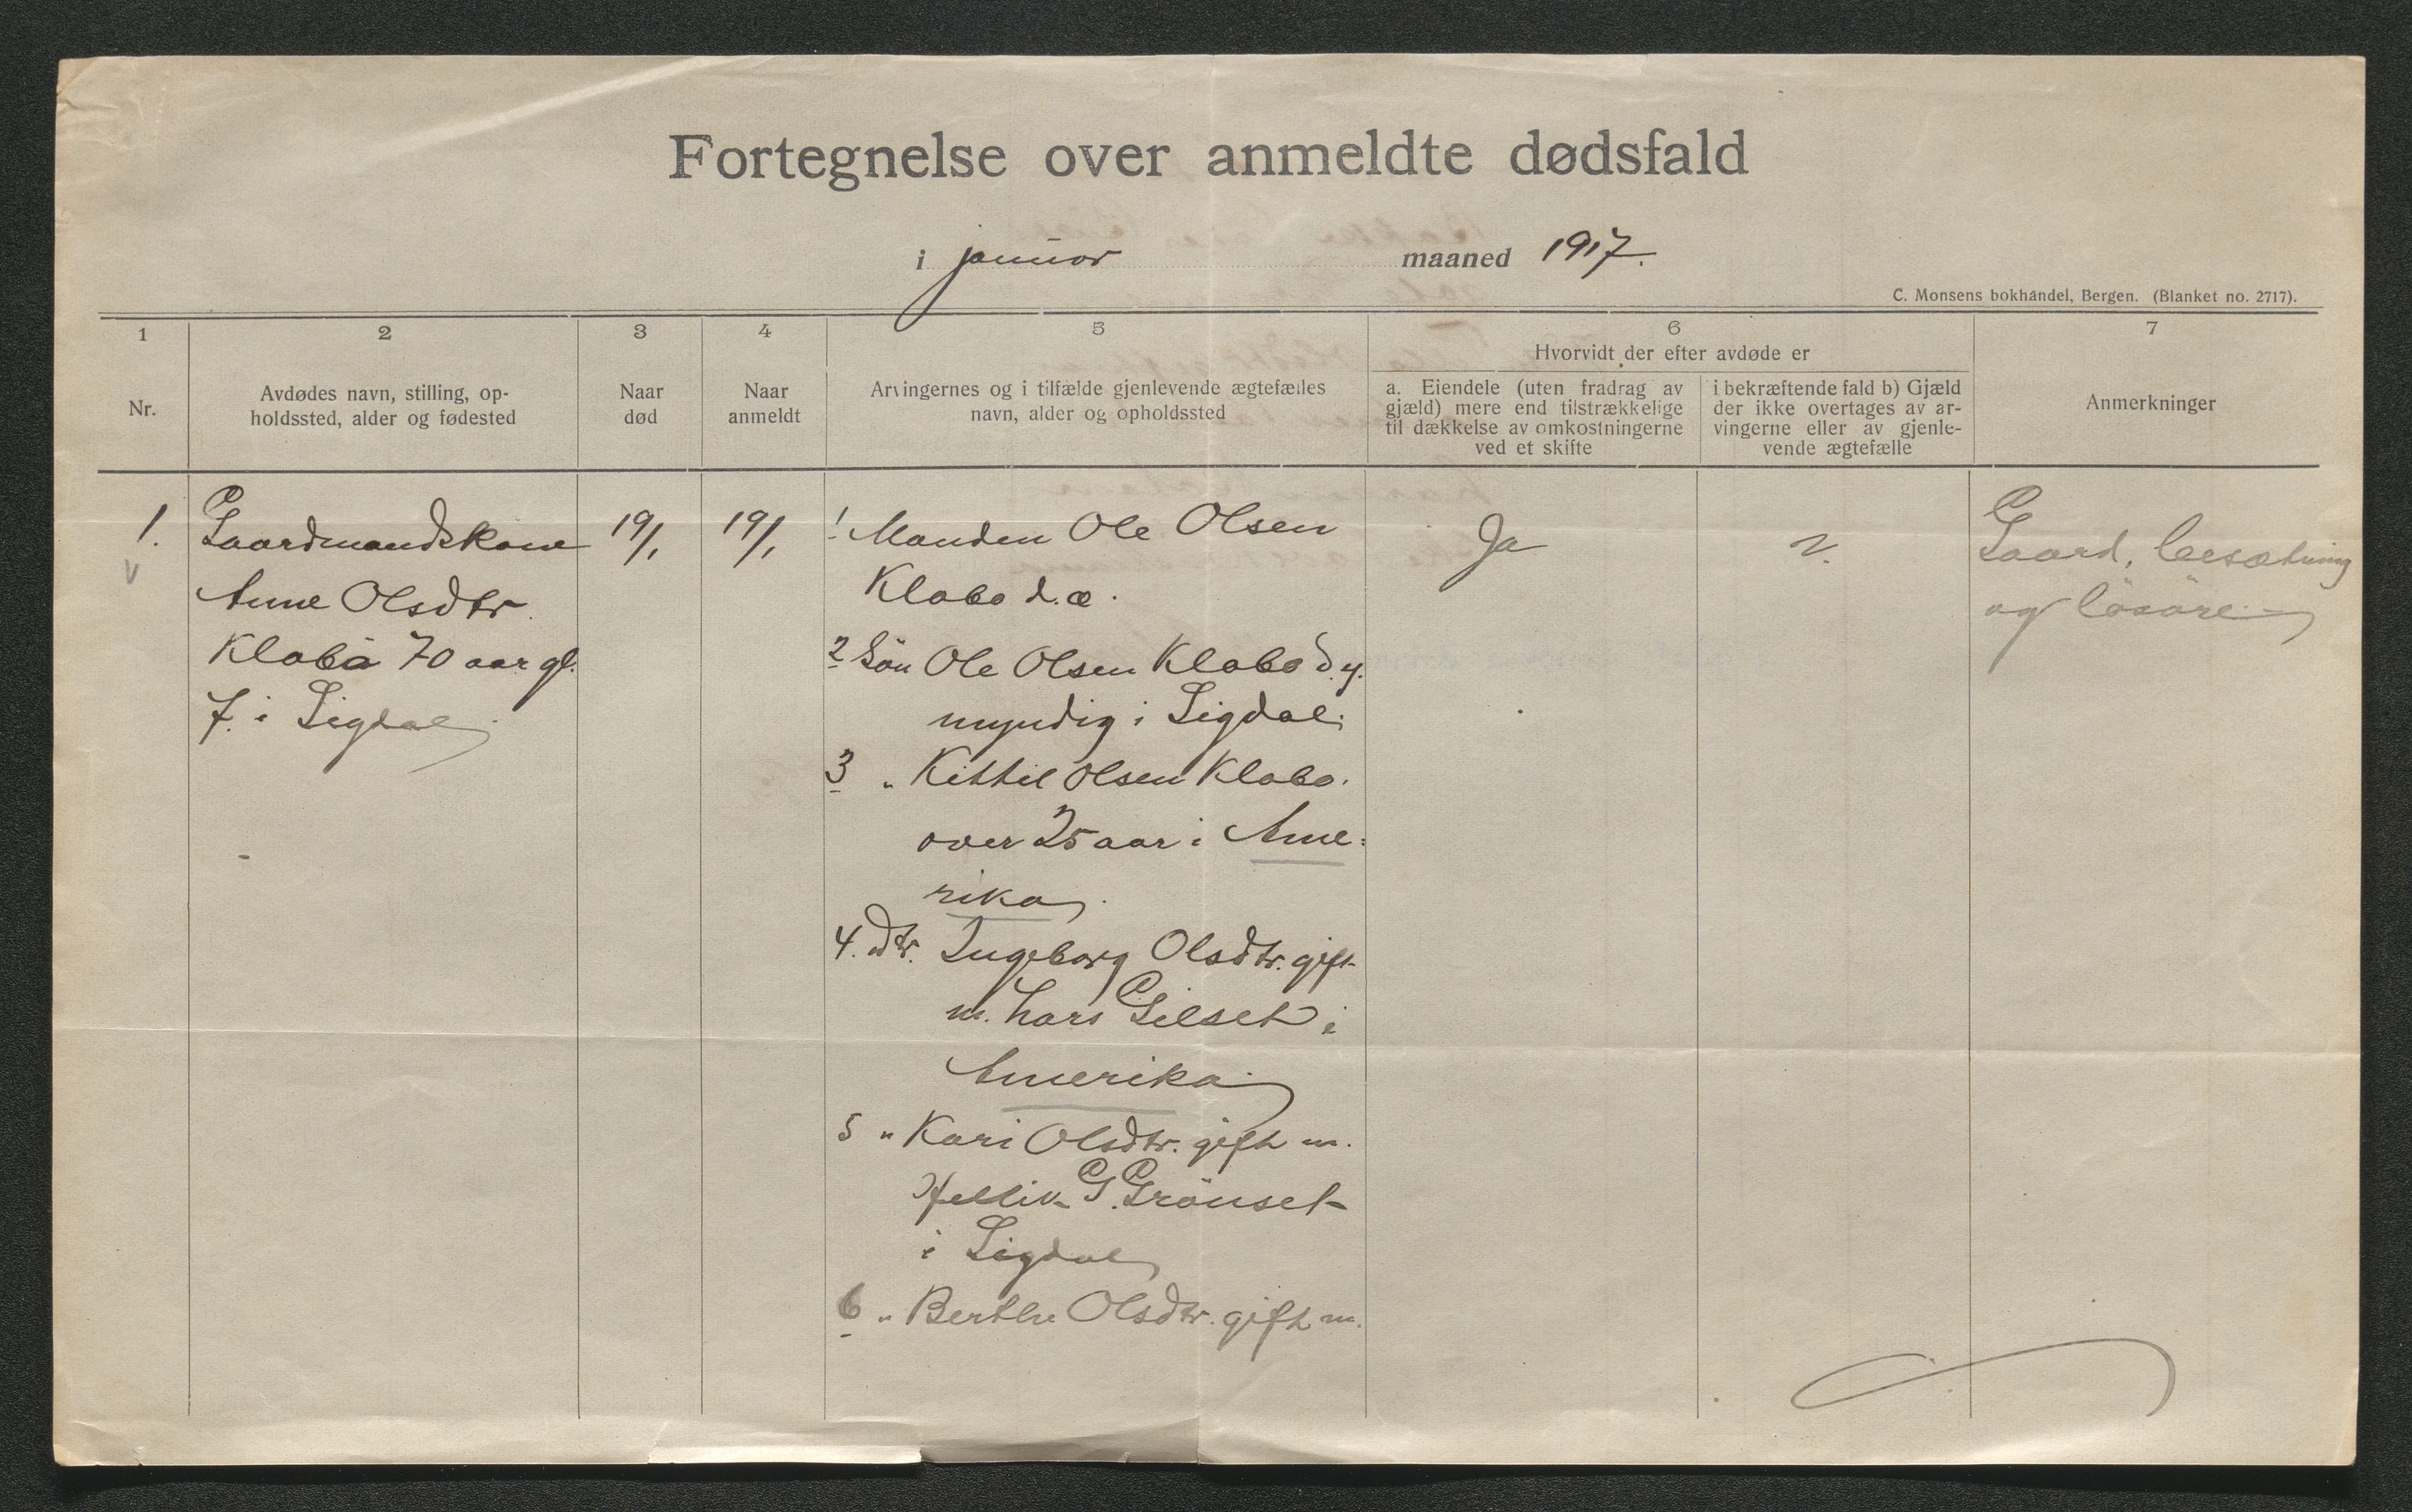 Fortegnelse over anmeldte dødsfald
i januar maaned 1917.
C. Monsens bokhandel, Bergen. (Blanket no. 2717).
1
2
3
4
5
6
7
Nr.
Avdødes navn, stilling, op-
holdssted, alder og fødested
Naar
død
Naar
anmeldt
Arvingernes og i tilfælde gjenlevende ægtefælles
navn, alder og opholdssted
Hvorvidt der efter avdøde er
a. Eiendele (uten fradrag av
gjæld) mere end tilstrækkelige
til dækkelse av omkostningerne
ved et skifte
i bekræftende fald b) Gjæld
der ikke overtages av ar-
vingerne eller av gjenle-
vende ægtefælle
Anmerkninger
1.
Gaardmandskone
Anne Olsdtr.
Klabo 70 aar gl.
f. i Sigdal
19/1
19/1
1 Manden Ole Olsen
Klabo d.æ.
2 Søn Ole Olsen Klabo d.y.
myndig i Sigdal.
3 " Kittil Olsen Klabo.
over 25 aar i Ame-
rika
4. dtr. Ingeborg Olsdtr. gift
m. Lars Gilset i
Amerika
5 " Kari Olsdtr. gift m.
Hellik G. Grönset
i Sigdal
6 " Berthe Olsdtr. gift m.
Ja
Gaard, besætning
og løsøre